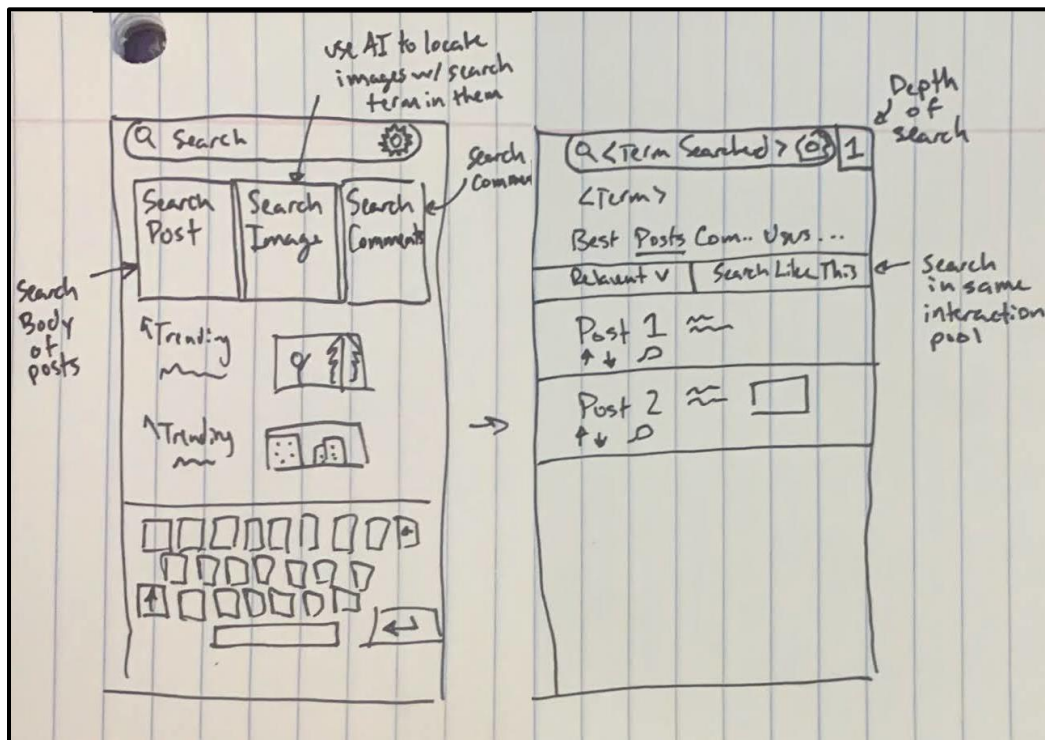 use AI to locate
images w/ search
term in them
Search
Search
Post
Search
Image
Search
Comments
Search
Commen
Search
Body
of
posts
Trending
Trending
Depth
of
search
<Term Searched> 1
<Term>
Best Posts Com.. Usrs ...
Relavent v Search Like This
Search
in same
interaction
pool
Post 1
Post 2